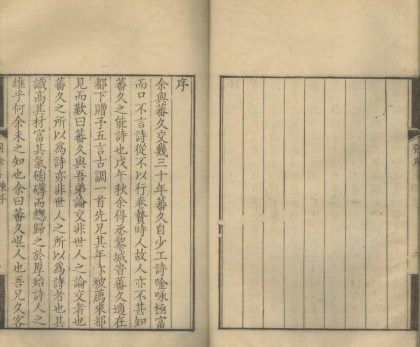 序
余與蕃久交幾三十年蕃久自少工詩唫咏極富
而口不言詩從不以行卷贄時人故人亦不甚知
蕃久之能詩也戊午秋余得丞黎城昔蕃久適在
都下贈予五言古調一首先兄其年亦被薦來都
見而歎曰蕃久與吾弟論交非世人之論交者也
蕃久之所以為詩亦非世人之所以為詩者也其
識高其材富其氣磅礴而總歸之於厚殆詩人之
雄乎何余未之知也余曰蕃久崐人也吾兄久客